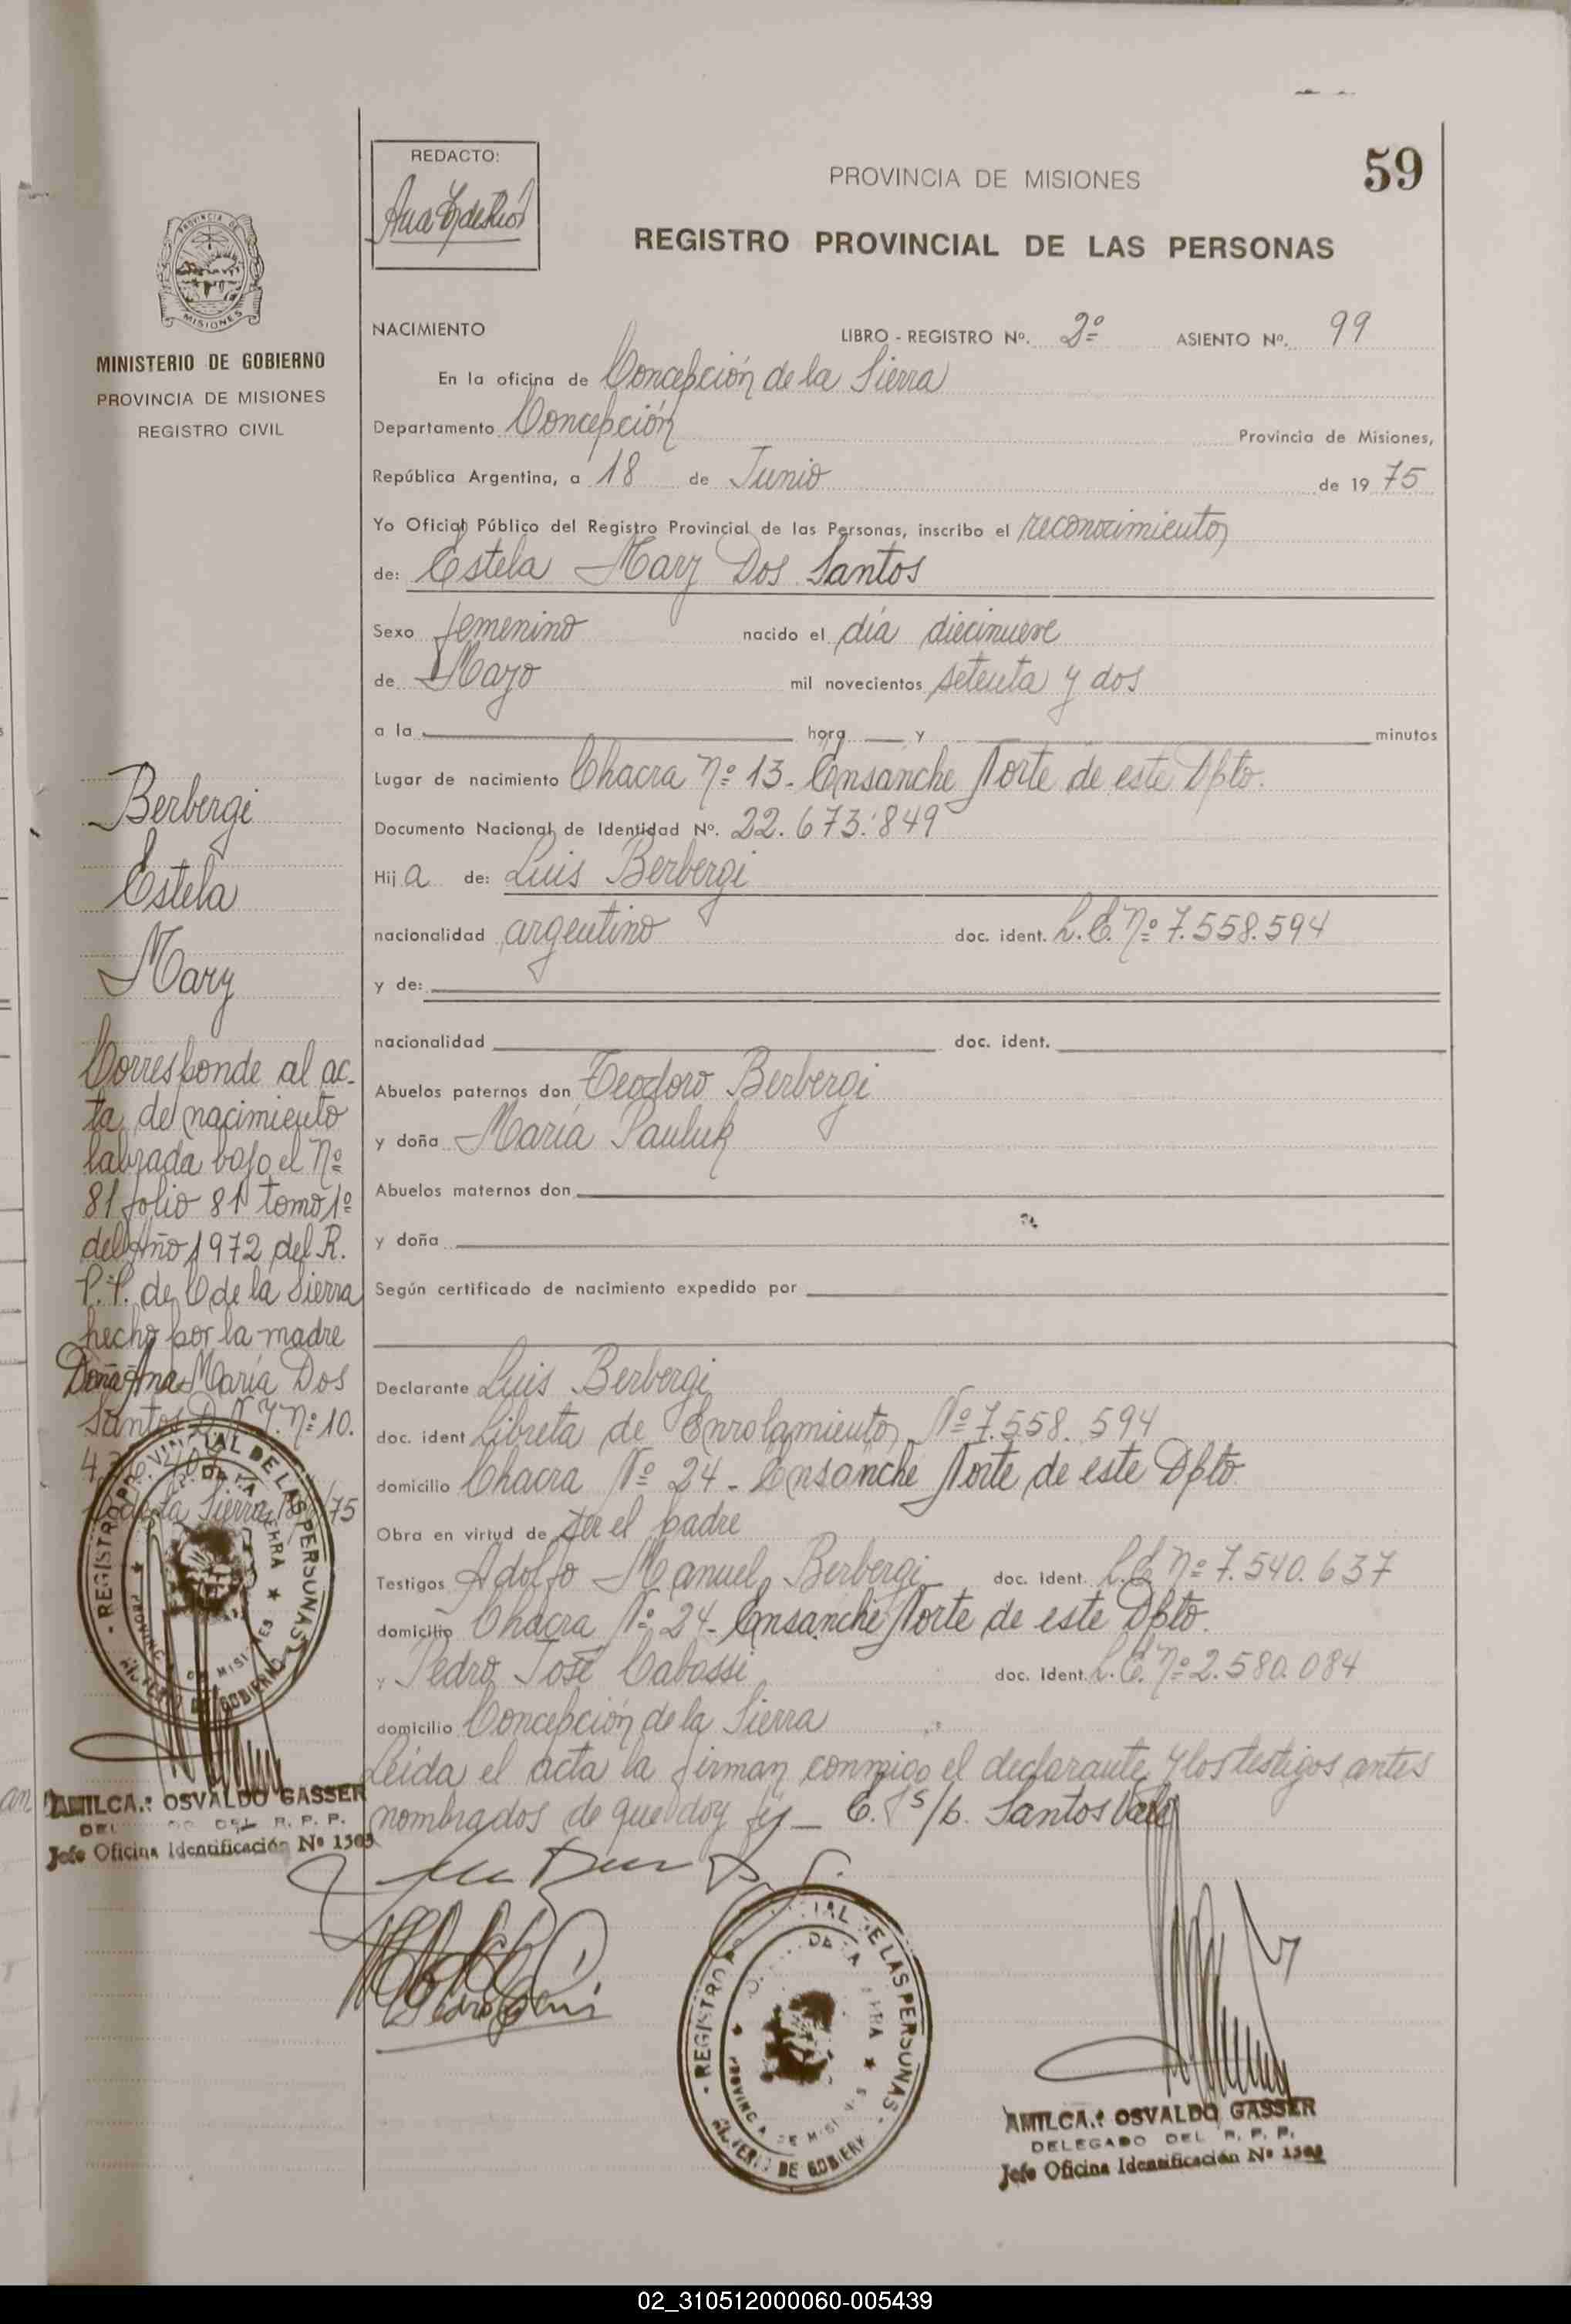 REDACTO:
PROVINCIA DE MISIONES
59
REGISTRO PROVINCIAL DE LAS PERSONAS
PROVINCIA DE
MISIONES
MINISTERIO DE GOBIERNO
PROVINCIA DE MISIONES
REGISTRO CIVIL
NACIMIENTO LIBRO - REGISTRO Nº. 2º ASIENTO Nº. 99
En la oficina de Concepción de la Sierra
Departamento Concepción Provincia de Misiones,
República Argentina, a 18 de Junio de 1975
Yo Oficial Público del Registro Provincial de las Personas, inscribo el reconocimiento
de: Estela Mary Dos Santos
Sexo femenino nacido el día diecinueve
de Mayo mil novecientos setenta y dos
a la hora y minutos
Lugar de nacimiento Chacra Nº 13 - Ensanche Norte de este Dpto.
Documento Nacional de Identidad Nº. 22.673.849
Hija de: Luis Berbergi
nacionalidad argentino doc. ident. L.E. Nº 7.558.594
y de:
nacionalidad doc. ident.
Abuelos paternos don Teodoro Berbergi
y doña María Pauluk
Abuelos maternos don
y doña
Según certificado de nacimiento expedido por
Declarante Luis Berbergi
doc. ident Libreta de Enrolamiento Nº 7.558.594
domicilio Chacra Nº 24 - Ensanche Norte de este Dpto.
Obra en virtud de ser el padre
Testigos Adolfo Manuel Berbergi doc. ident. L.E. Nº 7.540.637
domicilio Chacra Nº 24 - Ensanche Norte de este Dpto.
y Pedro José Cabassi doc. ident. L.E. Nº 2.580.084
domicilio Concepción de la Sierra
Leída el acta la firman conmigo el declarante y los testigos antes
nombrados de que doy fe - E. s/b. Santos Vale
Berbergi
Estela
Mary
Corresponde al ac-
ta de nacimiento
labrada bajo el Nº
81 folio 81 tomo 1º
del Año 1972 del R.
P.P. de C de la Sierra
hecho por la madre
Doña Ana María Dos
Santos D.N.I. Nº 10.
de la Sierra 18/6/75
REGISTRO PROVINCIAL DE LAS PERSONAS
PROVINCIA DE MISIONES
DE GOBIERNO
AMILCA.: OSVALDO GASSER
DEL R. P. P.
Jefe Oficina Identificación Nº 1503
REGISTRO DE LAS PERSONAS
DE GOBIERN
AMILCA.: OSVALDO GASSER
DELEGADO DEL R. P. P.
Jefe Oficina Identificación Nº
02_310512000060-005439